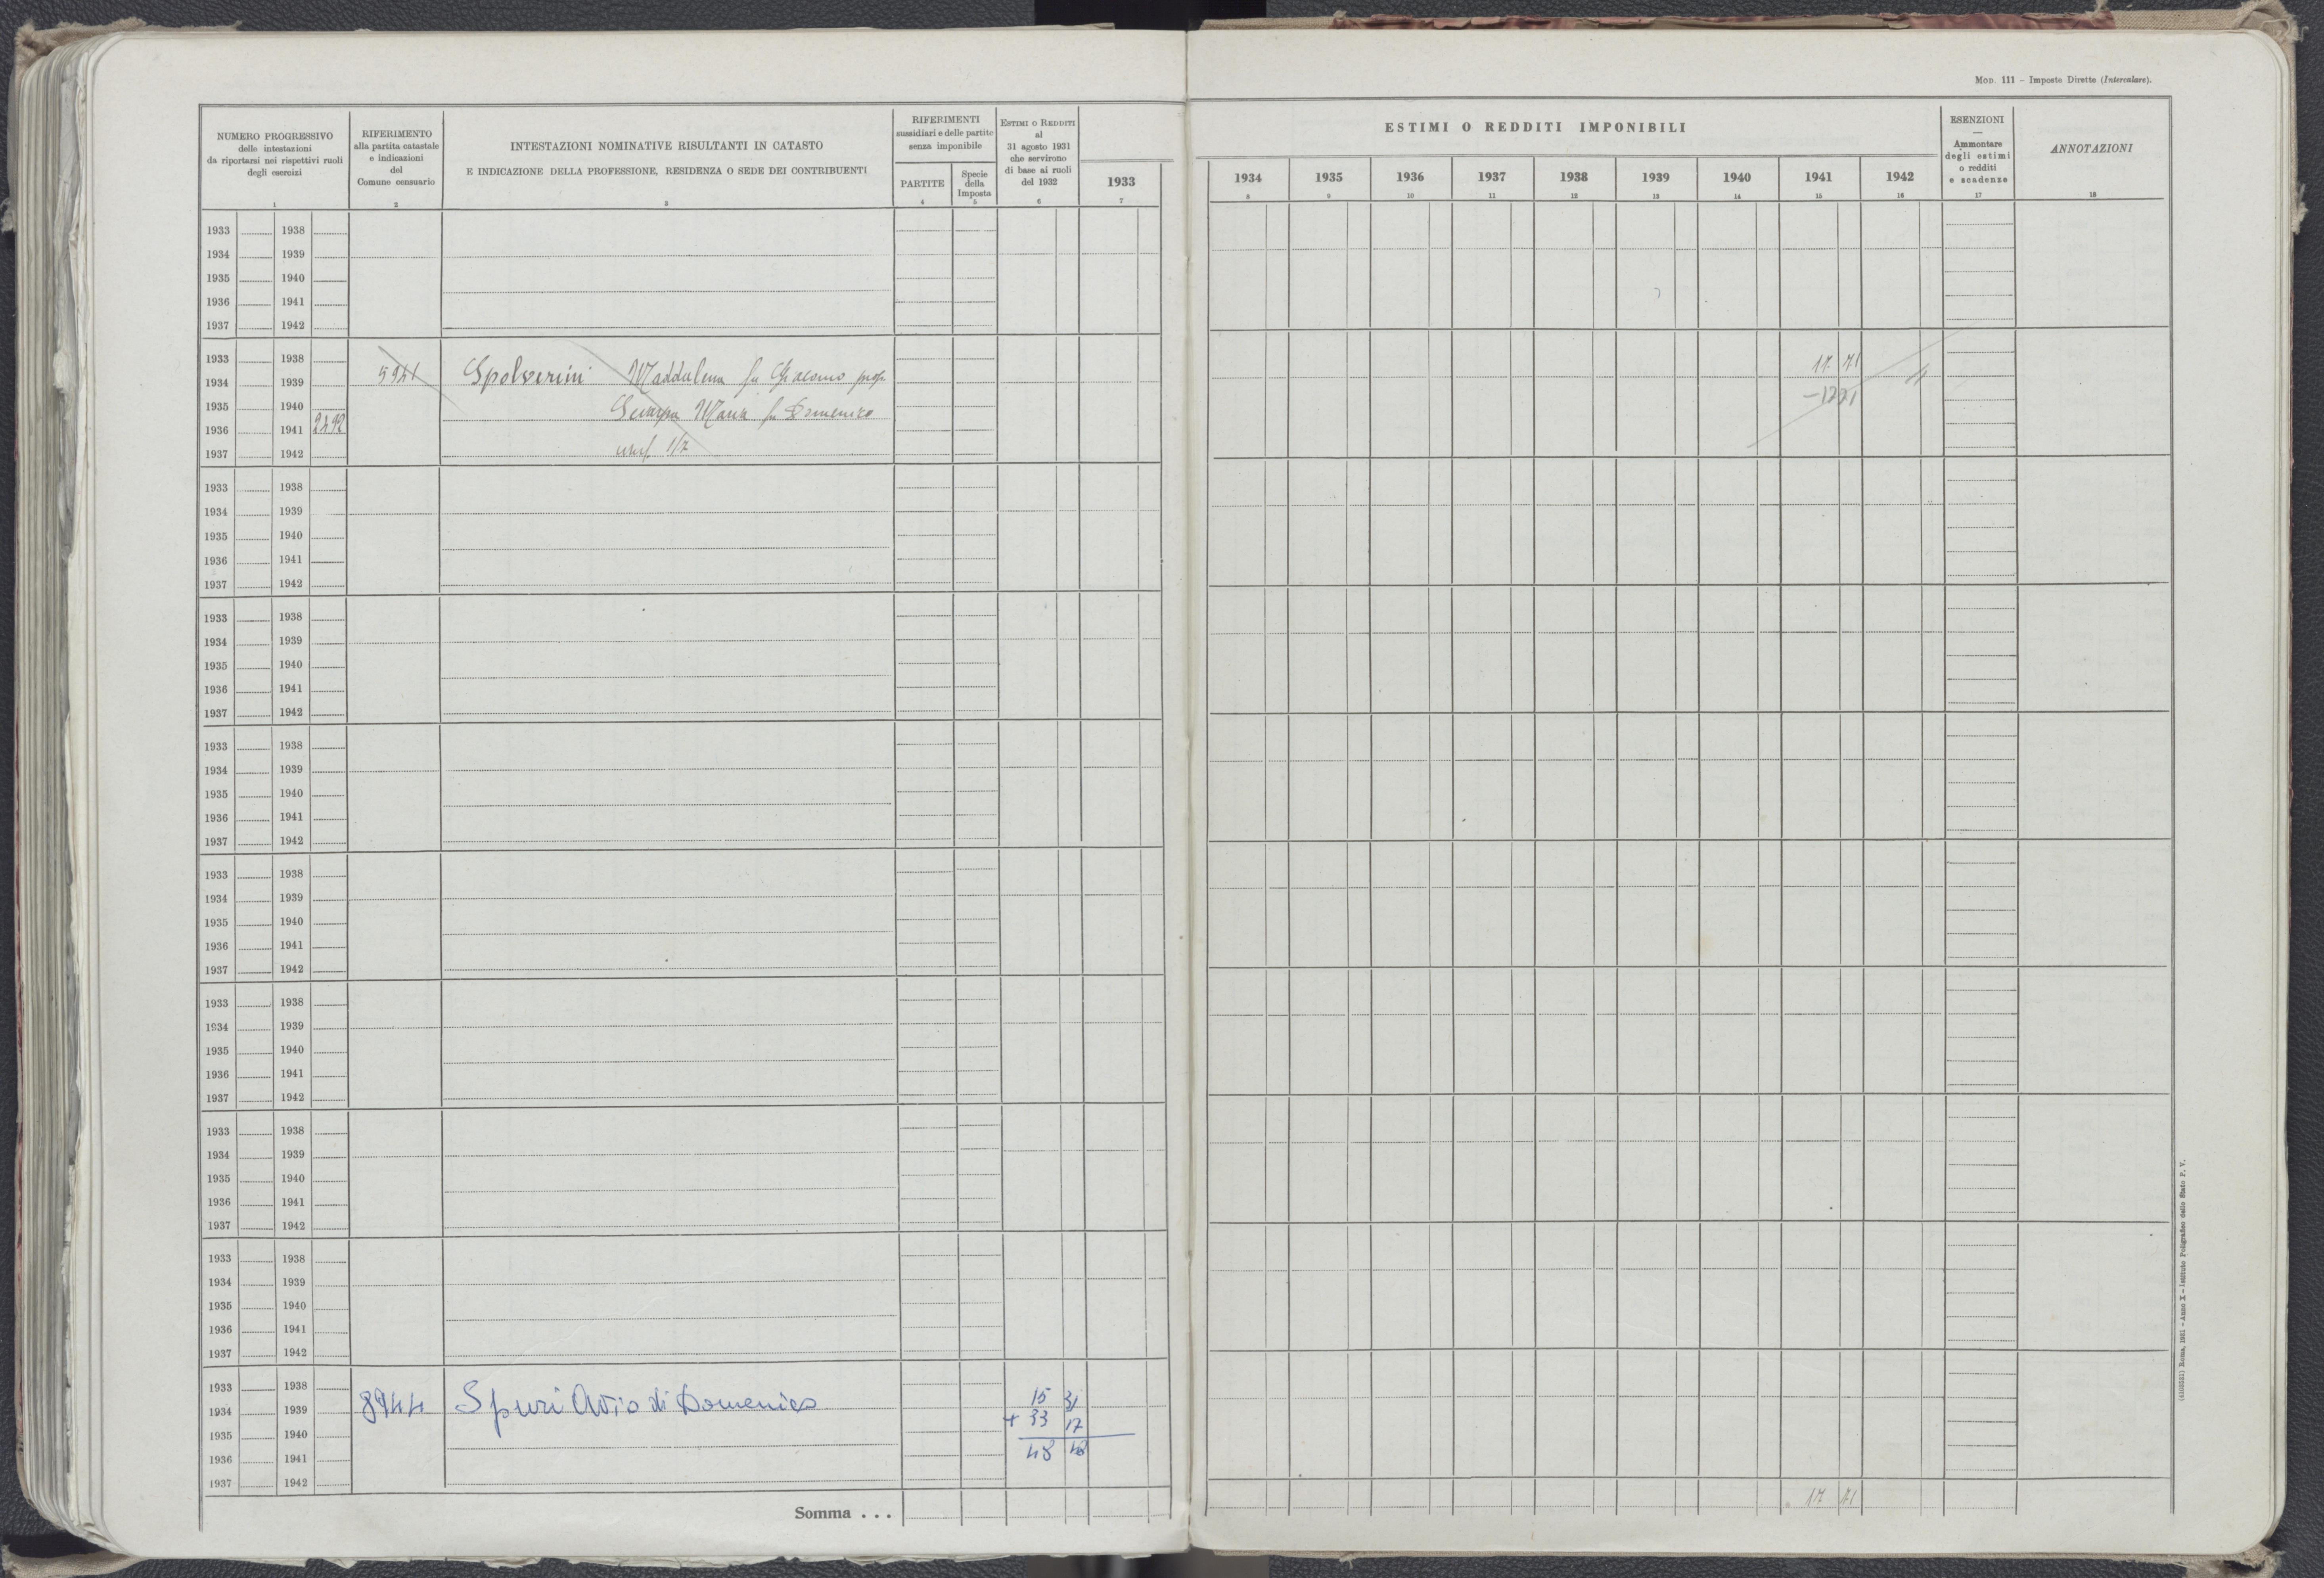 Mod. 111 – Imposte Dirette (Intercalare).
NUMERO PROGRESSIVO
delle intestazioni
da riportarsi nei rispettivi ruoli
degli esercizi
1
RIFERIMENTO
alla partita catastale
e indicazioni
del
Comune censuario
2
INTESTAZIONI NOMINATIVE RISULTANTI IN CATASTO
E INDICAZIONE DELLA PROFESSIONE, RESIDENZA O SEDE DEI CONTRIBUENTI
3
RIFERIMENTI
sussidiari e delle partite
senza imponibile
PARTITE
4
Specie
della
Imposta
5
Estimi o Redditi
al
31 agosto 1931
che servirono
di base ai ruoli
del 1932
6
ESTIMI O REDDITI IMPONIBILI
1933 1934 1935 1936 1937 1938 1939 1940 1941 1942
7 8 9 10 11 12 13 14 15 16
ESENZIONI
—
Ammontare
degli estimi
o redditi
e scadenze
17
ANNOTAZIONI
18
1933 1938
1934 1939
1935 1940
1936 1941
1937 1942
1933 1938
1934 1939 5941 Spolverini Maddalena fu Giacomo prop. 17 71
1935 1940 Maria fu Domenico
1936 1941 2492
1937 1942 usuf. 1/7
1933 1938
1934 1939
1935 1940
1936 1941
1937 1942
1933 1938
1934 1939
1935 1940
1936 1941
1937 1942
1933 1938
1934 1939
1935 1940
1936 1941
1937 1942
1933 1938
1934 1939
1935 1940
1936 1941
1937 1942
1933 1938
1934 1939
1935 1940
1936 1941
1937 1942
1933 1938
1934 1939
1935 1940
1936 1941
1937 1942
1933 1938
1934 1939
1935 1940
1936 1941
1937 1942
1933 1938 15 31
1934 1939 8944 Spuri Avio di Domenico + 33 17
1935 1940
1936 1941 48 48
1937 1942
Somma . . . 17 71
(4100551) Roma, 1931 – Anno X – Istituto Poligrafico dello Stato P. V.